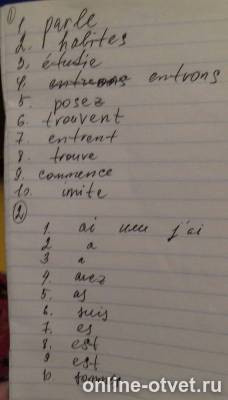 ①
1. parle
2. habites
3. étudie
4. entrons entrons
5. posez
6. trouvent
7. entrent
8. trouve
9. commence
10. imite
②
1. ai или j'ai
2 a
3 a
4. avez
5. as
6. suis
7. es
8. est
9 est
10 sommes
online-otvet.ru